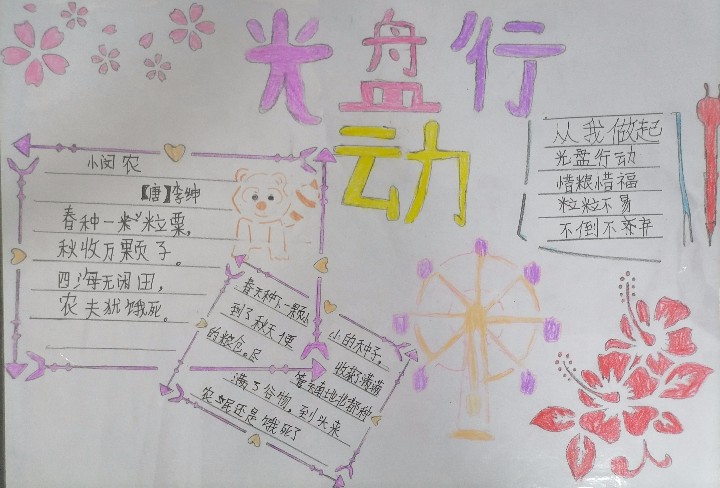 光盘行
动
小闵农
【唐】李绅
春种一粒粟,
秋收万颗子。
四海无闲田,
农夫犹饿死。
春天种下一颗小
小的种子,
到了秋天便
收获了满满
的粮仓。尽
管南地北都种
满了谷物,到头来
农民还是饿死了
从我做起
光盘行动
惜粮惜福
粒粒不易
不倒不弃